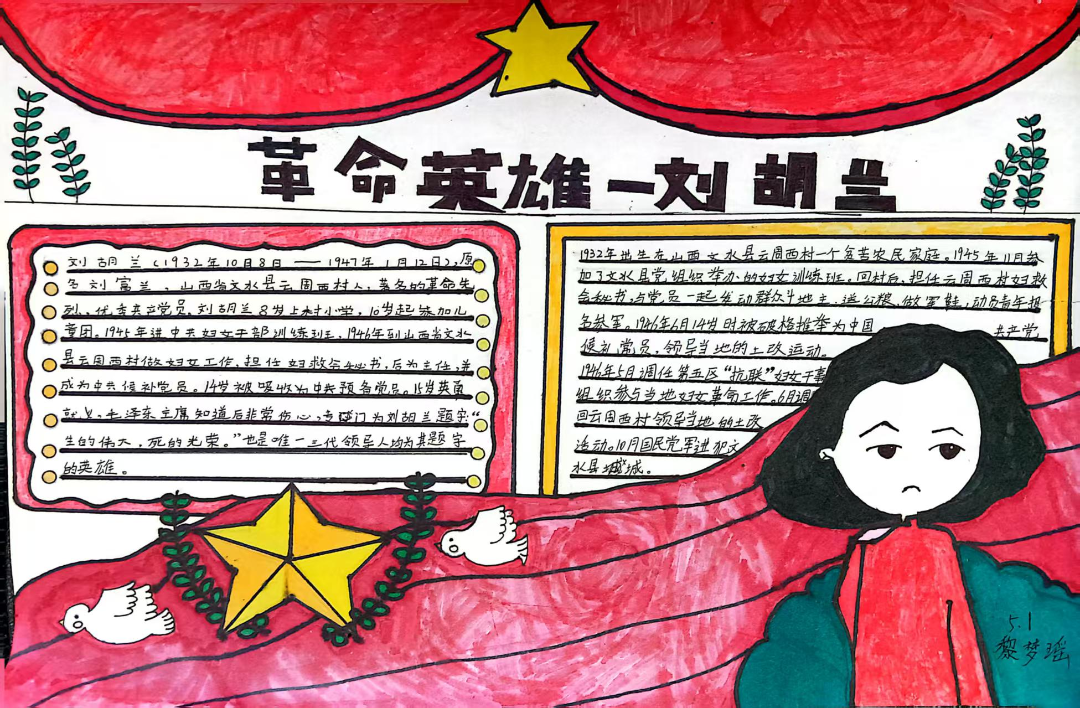 革命英雄—刘胡兰
刘胡兰(1932年10月8日——1947年1月12日),原
名刘富兰,山西省文水县云周西村人,著名的革命先
烈,优秀共产党员。刘胡兰8岁上村小学,10岁起参加儿
童团。1945年进中共妇女干部训练班,1946年到山西省文水
县云周西村做妇女工作,担任妇救会秘书,后为主任,并
成为中共候补党员。14岁被吸收为中共预备党员。15岁英勇
就义。毛泽东主席知道后非常伤心,专门为刘胡兰题字“
生的伟大,死的光荣。”也是唯一三代领导人均为其题字
的英雄。
1932年出生在山西文水县云周西村一个贫苦农民家庭。1945年11月参
加了文水县党组织举办的妇女训练班。回村后,担任云周西村妇救
会秘书,与党员一起发动群众斗地主,送公粮,做军鞋,动员青年报
名参军。1946年6月14岁时被破格推举为中国 共产党
候补党员,领导当地的土改运动。
1946年5月调任第五区“抗联”妇女干事
组织参与当地妇女革命工作。6月调
回云周西村领导当地的土改
运动。10月国民党军进犯文
水县城。
5.1
黎梦瑶